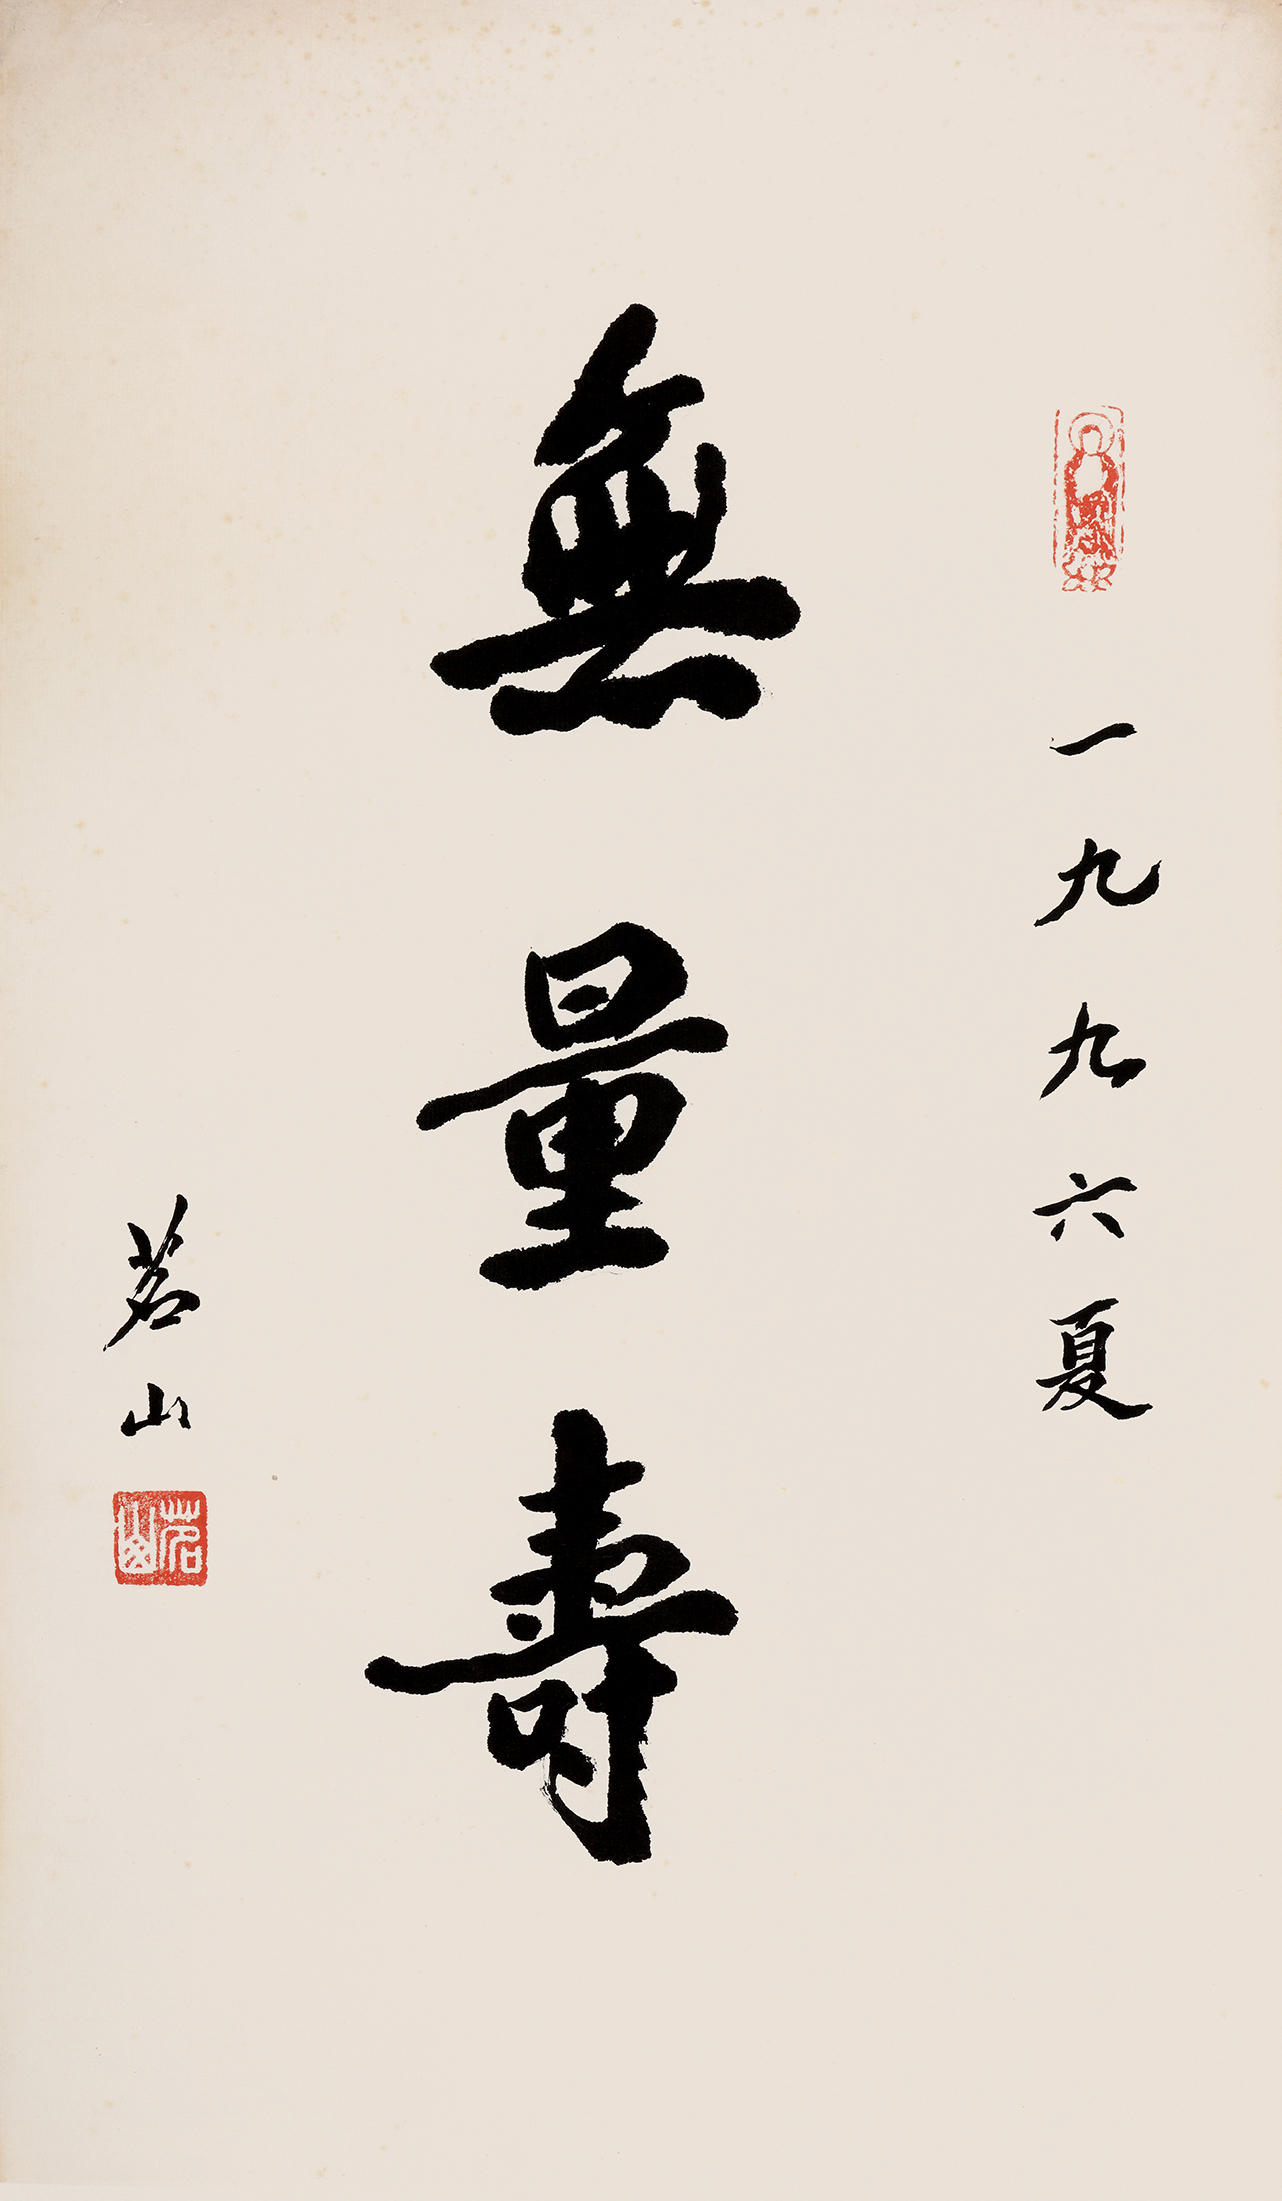 一九九六夏
無量壽
茗山
茗山